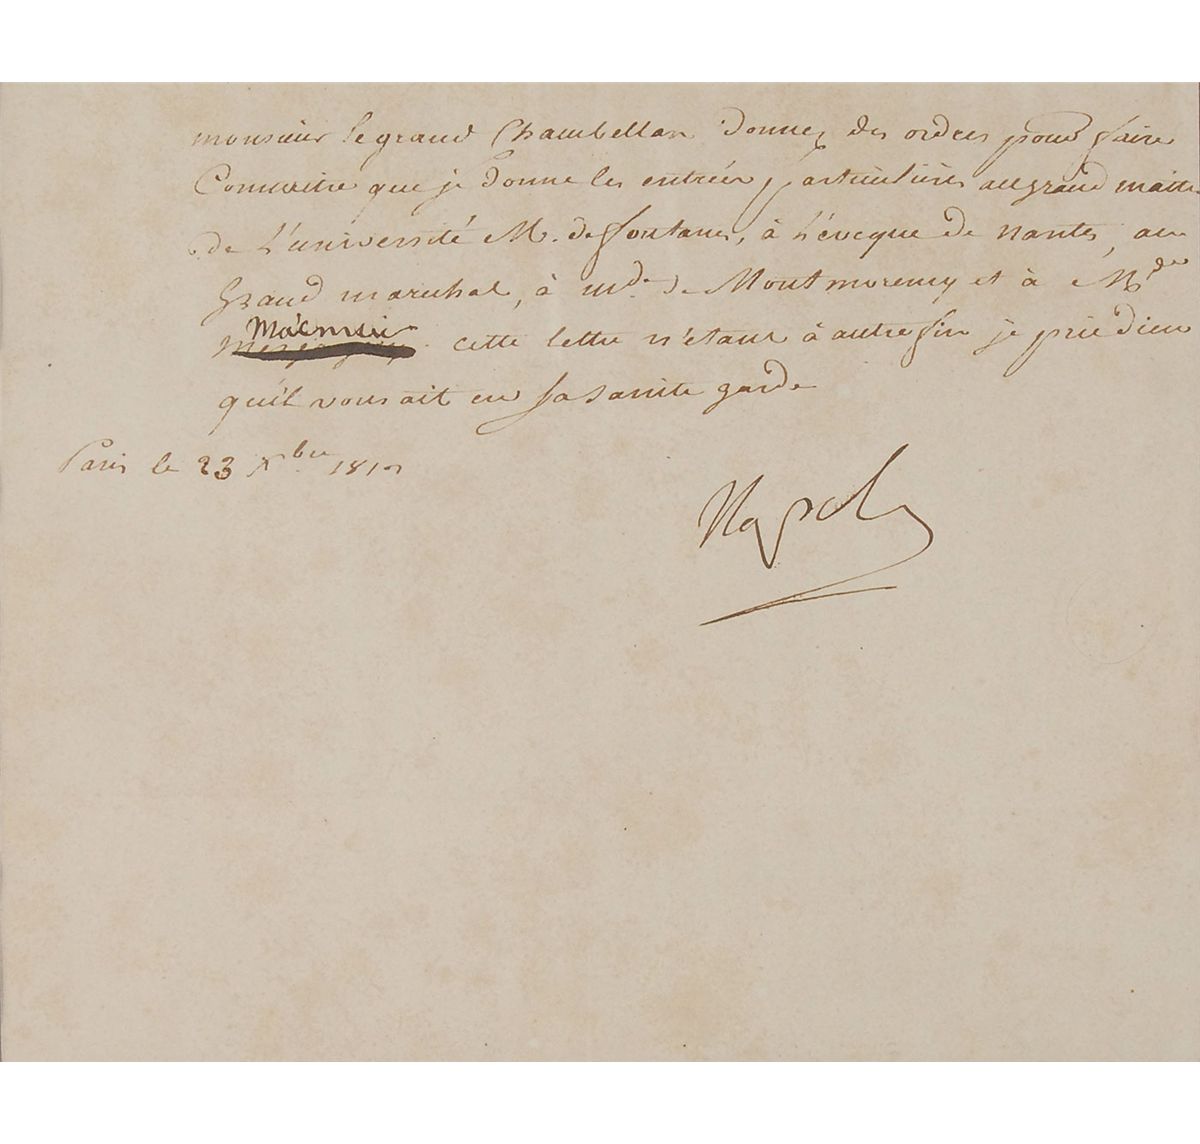 monsieur le grand Chambellan donnez des ordres pour faire
Connaitre que je donne les entrées particulières au grand maitre
de l'université M. de fontanes, à l'évêque de nantes, au
grand maréchal, à md.e de Montmorency et à Md.e de
cette lettre n'étant à autre fin je prie dieu
qu'il vous ait en sa sainte garde
Paris le 23 Xbre 181
Napol